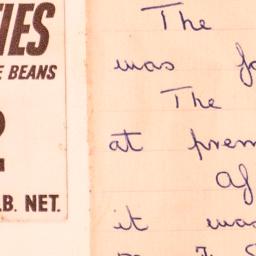 IES
E BEANS
2
LB. NET.
The
was
The
at prem
af
it was